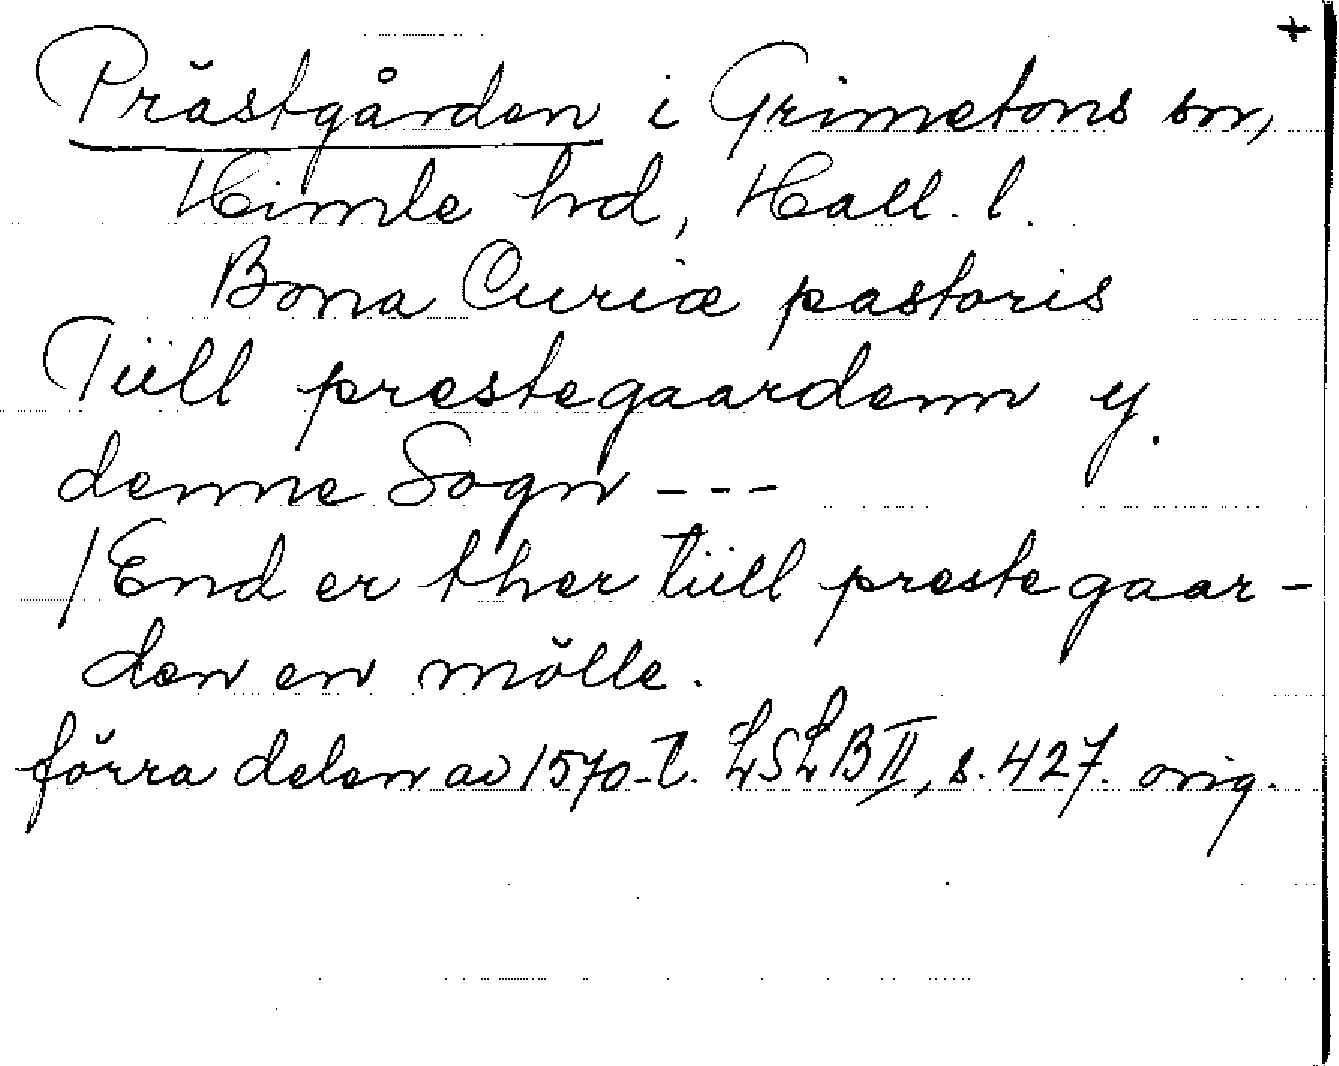 +
Prästgården i Grimetons sn,
Himle hd, Hall. l.
Bona Curiæ pastoris
Tiill prestegaardenn y.
denne Sogn ---
/End er ther tiill prestegaar-
den en mölle.
förra delen av 1570-t. LSLB II, s. 427. orig.